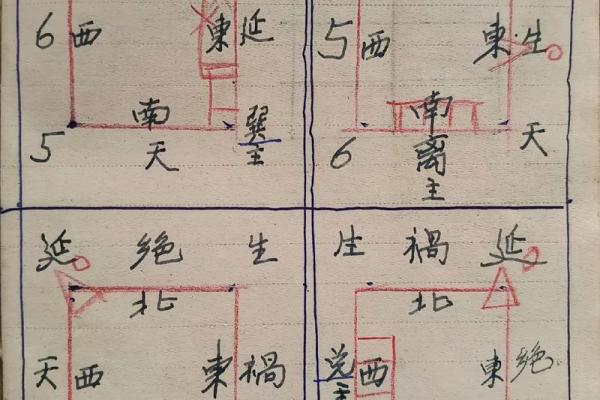 6 西 東 延
南
5 天 巽
主
5 西 東 生
南 天
6 离
主
延 绝 生
北
天 西 東 禍
生 禍 延
北
兑 西 東 绝
主